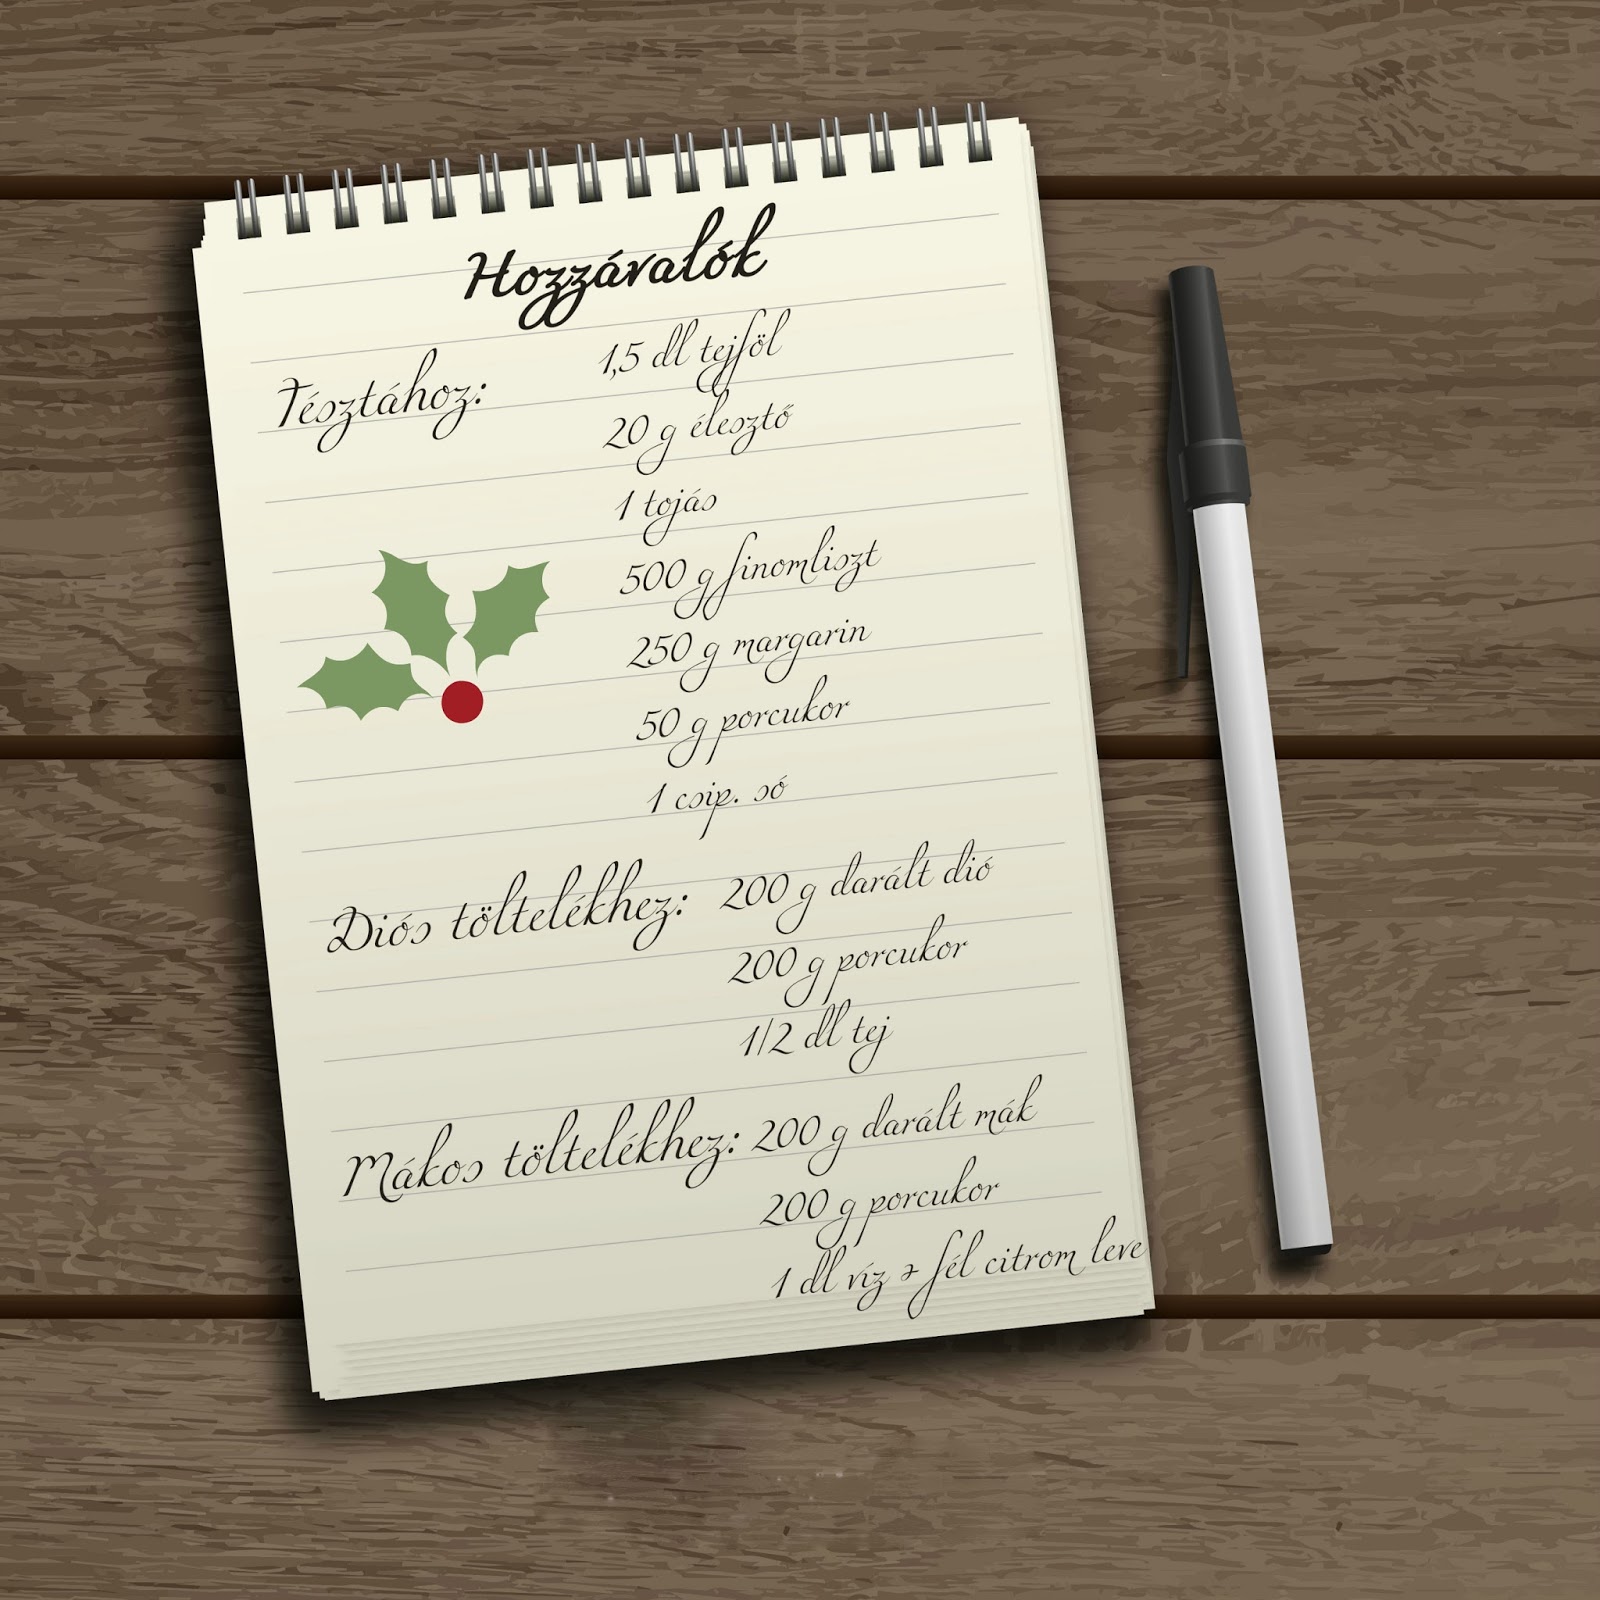 Hozzávalók
Tésztához: 1,5 dl tejföl
20 g élesztő
1 tojás
500 g finomliszt
250 g margarin
50 g porcukor
1 csip. só
Diós töltelékhez: 200 g darált dió
200 g porcukor
1/2 dl tej
Mákos töltelékhez: 200 g darált mák
200 g porcukor
1 dl víz + fél citrom leve